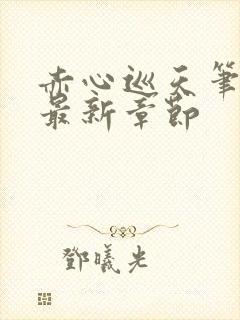 赤心巡天笔
最新章節
鄧曦光